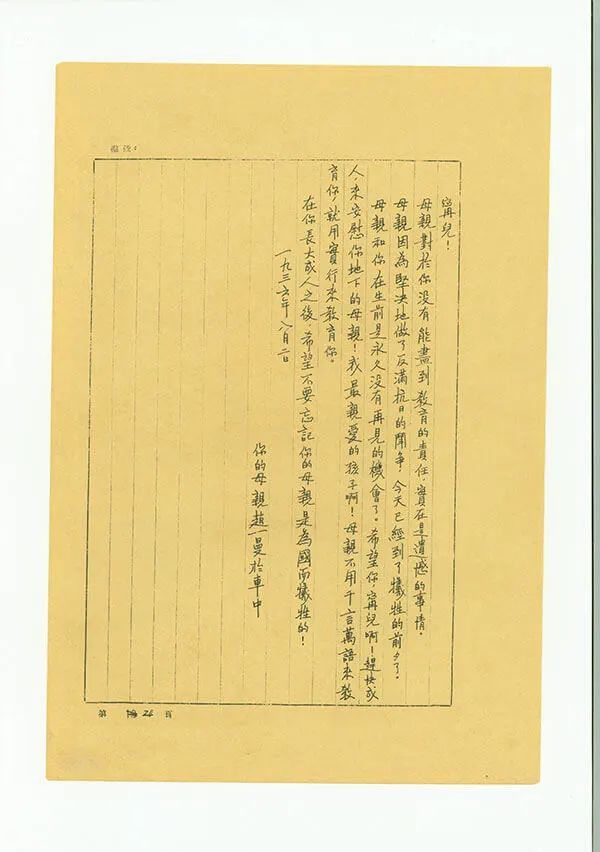 備後：
甯兒！
母親對於你沒有能盡到教育的責任，實在是遺憾的事情。
母親因為堅決地做了反滿抗日的鬪争，今天已經到了犠牲的前夕了。
母親和你在生前是永久沒有再見的機會了。希望你，甯兒啊！趕快成
人，來安慰你地下的母親！我最親愛的孩子啊！母親不用千言萬語來教
育你，就用實行來教育你。
在你長大成人之後，希望不要忘記你的母親是為國而犠牲的！
一九三六年八月二日
你的母親趙一曼於車中
第 頁